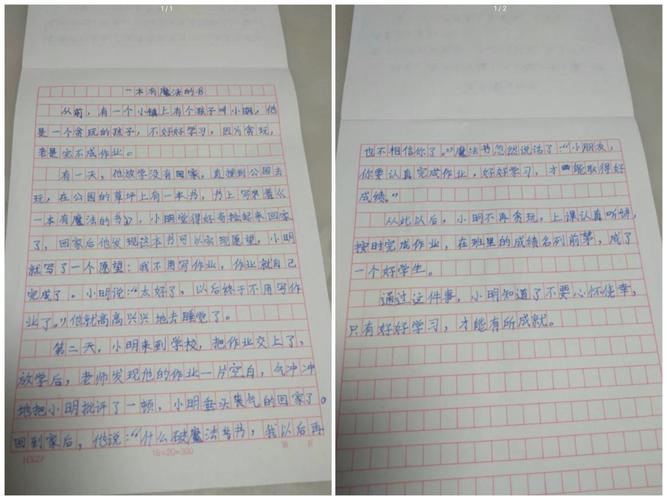 1/1
一本有魔法的书
从前，有一个小镇上有个孩子叫小明，他
是一个贪玩的孩子，不好好学习，因为贪玩，
老是完不成作业。
有一天，他放学没有回家，直接到公园去
玩，在公园的草坪上有一本书，书上写着《
一本有魔法的书》，小明觉得好奇捡起来回家
了，回家后他发现这本书可以实现愿望，小明
就写了一个愿望：我不用写作业，作业就自己
完成了。小明说：“太好了，以后终于不用写作
业了。”他就高高兴兴地去睡觉了。
第二天，小明来到学校，把作业交上了，
放学后，老师发现他的作业一片空白，气冲冲
地把小明批评了一顿，小明垂头丧气的回家了。
回到家后，他说：“什么破魔法书，我以后再
16×20=300
2/2
也不相信你了。”魔法书忽然说话了：“小朋友，
你要认真完成作业，好好学习，才能取得好
成绩。”
从此以后，小明不再贪玩，上课认真听讲，
按时完成作业，在班里的成绩名列前茅，成了
一个好学生。
通过这件事，小明知道了不要心怀侥幸，
只有好好学习，才能有所成就。